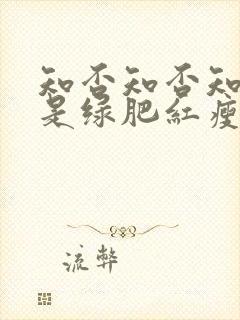 知否知否知
是绿肥红瘦
流弊